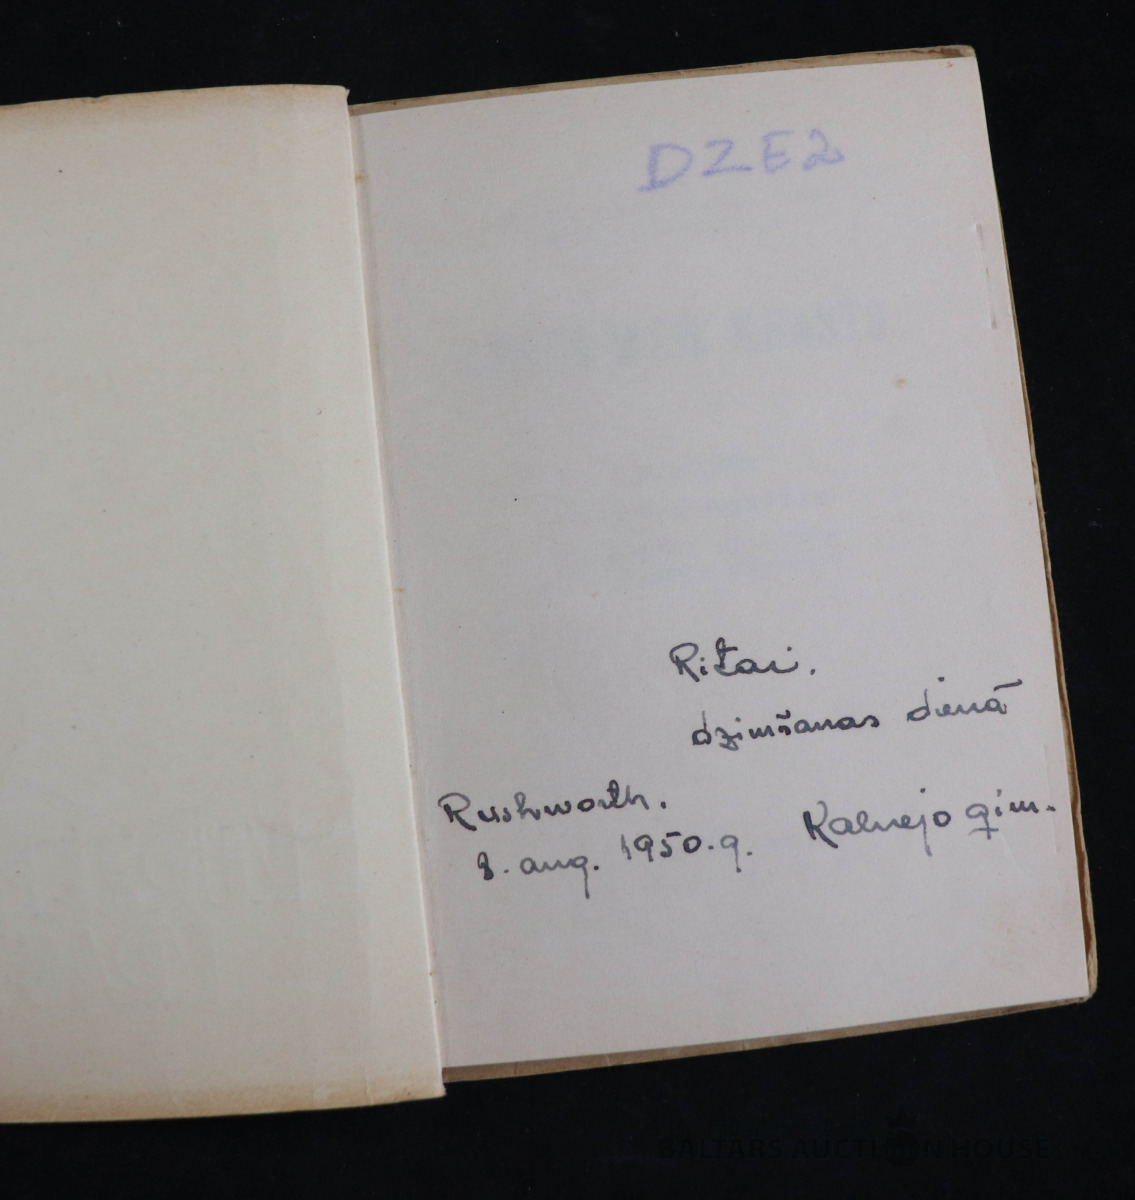 DZE2
Ritai.
dzimšanas dienā
Rushworth.
8. aug. 1950.g.
Kalnejo ģim.
BALTARS AUCTION HOUSE